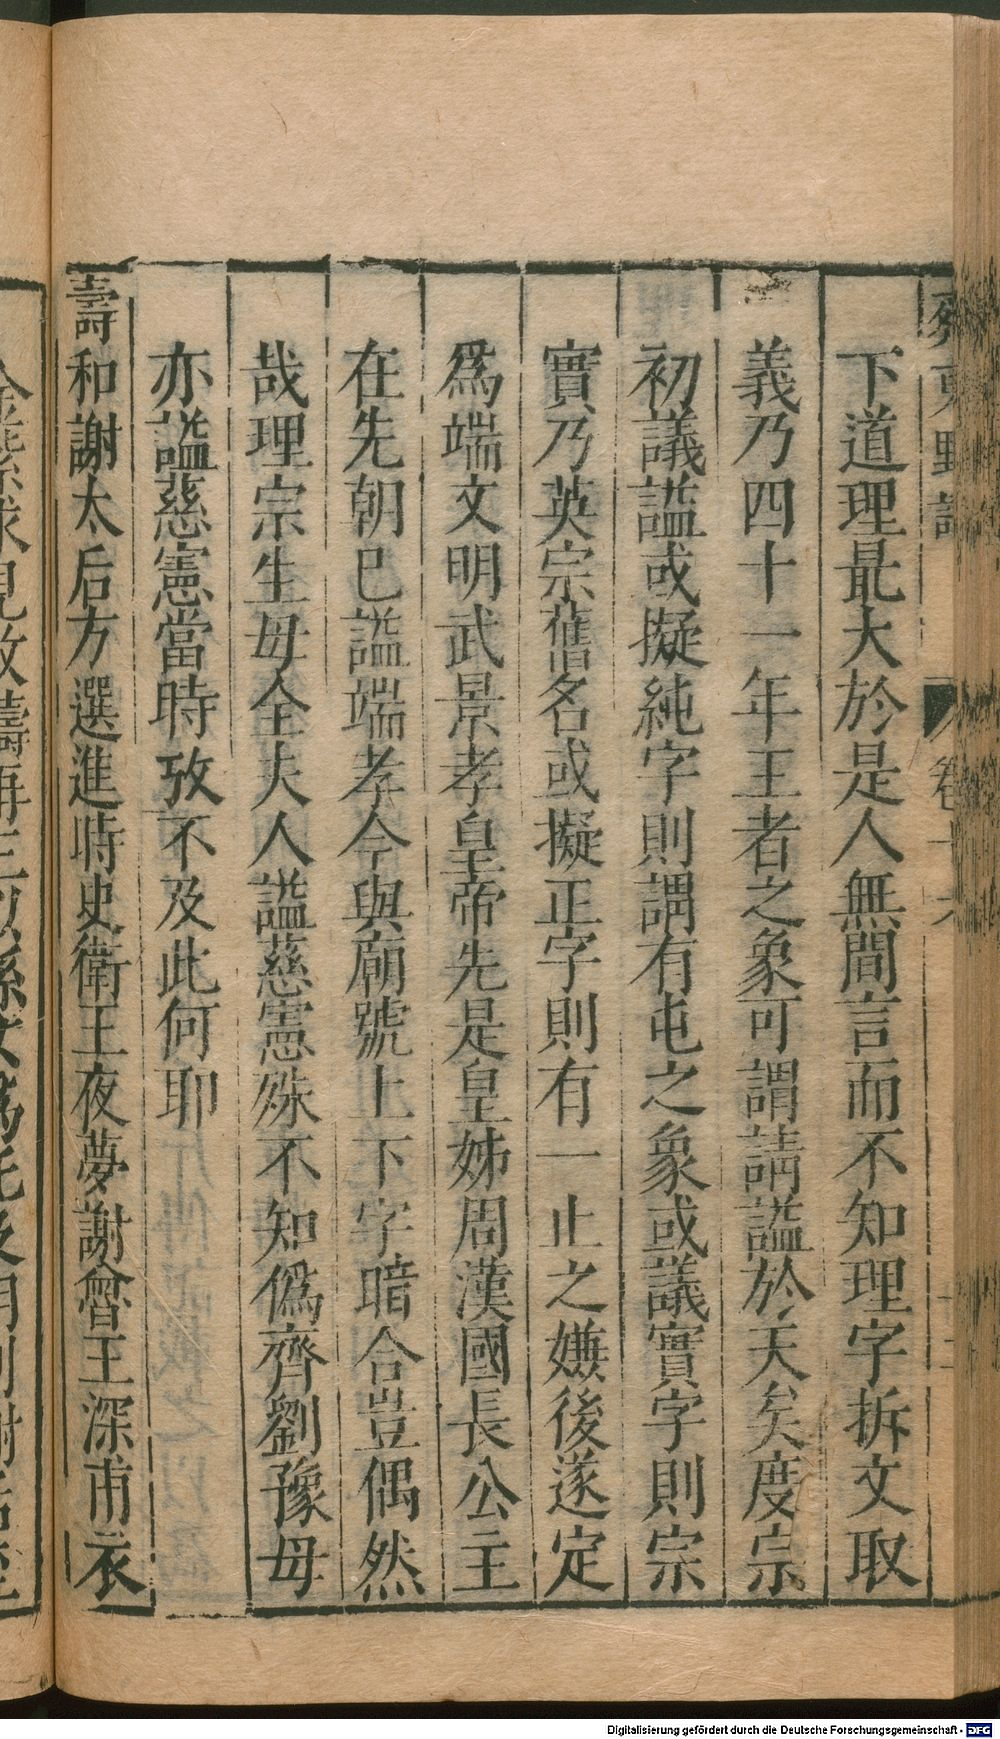 齊東野語 卷十六
下道理最大於是人無間言而不知理字拆文取
義乃四十一年王者之象可謂請謚於天矣度宗
初議謚或擬純字則謂有屯之象或議實字則宗
實乃英宗舊名或擬正字則有一止之嫌後遂定
爲端文明武景孝皇帝先是皇姊周漢國長公主
在先朝已謚端孝今與廟號上下字暗合豈偶然
哉理宗生母全夫人謚慈憲殊不知僞齊劉豫母
亦謚慈憲當時攷不及此何耶
壽和謝太后方選進時史衛王夜夢謝魯王深甫衣
Digitalisierung gefördert durch die Deutsche Forschungsgemeinschaft - DFG